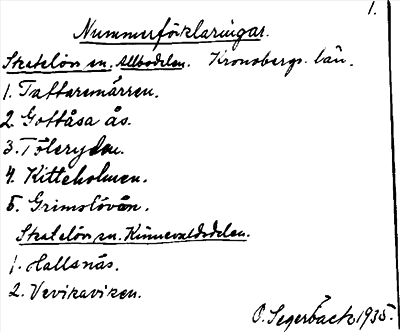 1.
Nummerförklaringar.
Skatelövs sn. Allbodelen. Kronobergs län.
1. Tattaremärren.
2. Gottåsa ås.
3. Töleryden.
4. Kitteholmen.
5. Grimslövån.
Skatelövs sn. Kinnevaldsdelen.
1. Hallsnäs.
2. Vevikaviken.
O. Segerbäck 1935.